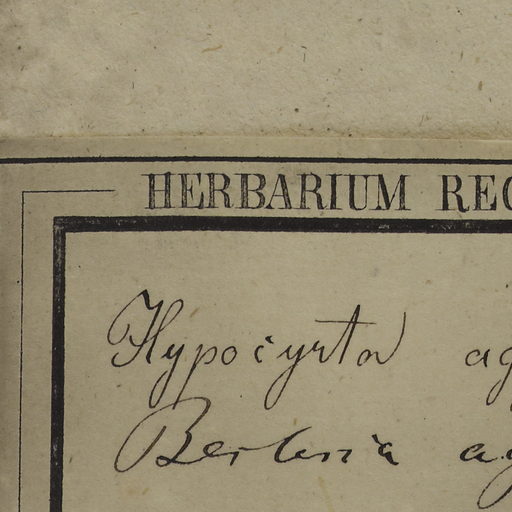 HERBARIUM REG
Hypocyrta ag
Besleria ag